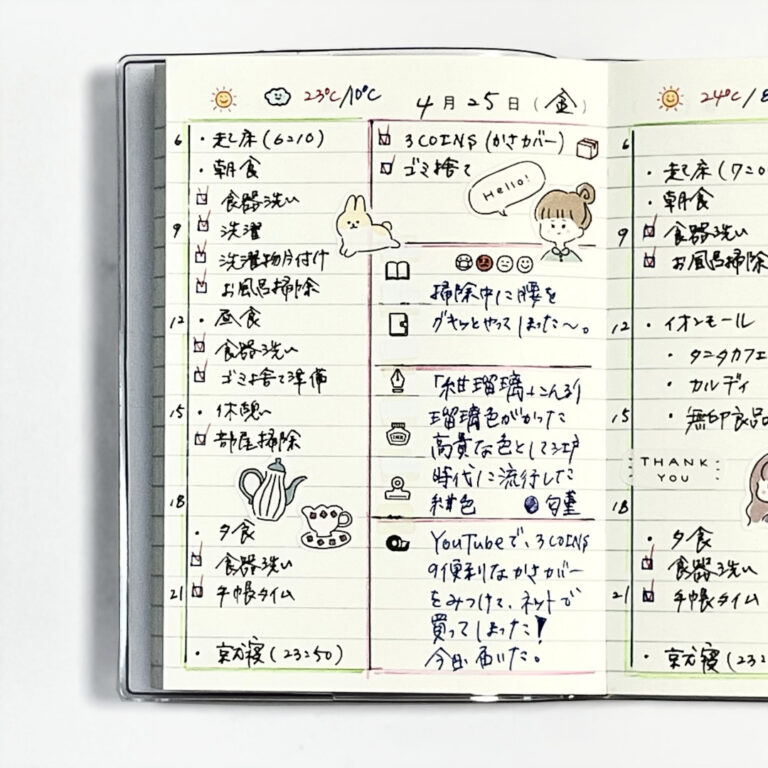 23℃/10℃
4月25日(金)
6 ・起床(6:10)
・朝食
食器洗い
9 洗濯
洗濯物片付け
お風呂掃除
12 ・昼食
食器洗い
ゴミ捨て準備
15 ・休憩
部屋掃除
18
・夕食
食器洗い
21 手帳タイム
・就寝(23:50)
3COINS(かさカバー)
ゴミ捨て
Hello!
掃除中に腰を
グキッとやってしまった〜。
「紺瑠璃」こんるり
瑠璃色がかった
高貴な色として江戸
時代に流行した
紺色
YouTubeで、3COINS
の便利なかさカバー
をみつけて、ネットで
買ってしまった!
今日、届いた。
24℃/8
6
・起床(7:0
・朝食
9 食器洗い
お風呂掃除
12 ・イオンモール
・タニタカフェ
・カルディ
15 ・無印良品
THANK
YOU
18
・夕食
食器洗い
21 手帳タイム
・就寝(23: